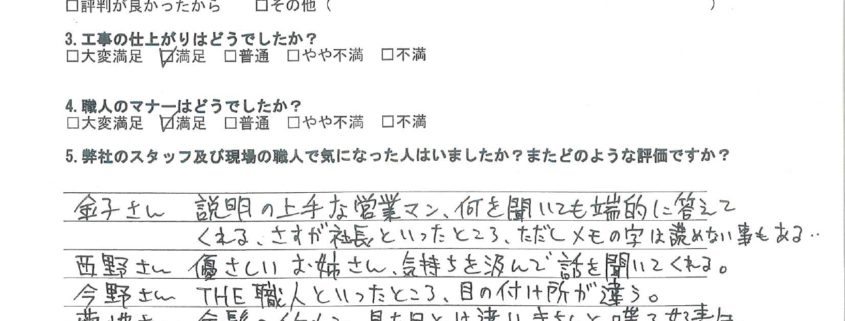 □評判が良かったから　□その他（　　　　　　　　　　　　　　　）
3. 工事の仕上がりはどうでしたか？
□大変満足　☑満足　□普通　□やや不満　□不満
4. 職人のマナーはどうでしたか？
□大変満足　☑満足　□普通　□やや不満　□不満
5. 弊社のスタッフ及び現場の職人で気になった人はいましたか？またどのような評価ですか？
金子さん　説明の上手な営業マン、何を聞いても端的に答えて
くれる、さすが社長といったところ、ただしメモの字は読めない事もある‥
西野さん　優さしいお姉さん、気持ちを汲んで話を聞いてくれる。
今野さん　THE職人といったところ、目の付け所が違う。